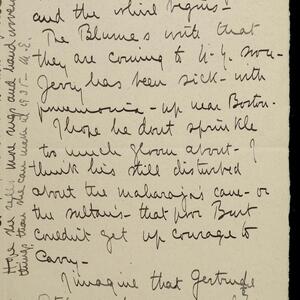 and the whine begins!
The Blumes write that
they are coming to N.Y. soon.
Jerry has been sick - with
pneumonia - up near Boston.
I hope he dont sprinkle
to much gloom about - I
think his still disturbed
about the maharaja's cane - or
the sultan's - that poor Burt
couldn't get up courage to
carry.
I imagine that Gertrude
rugs and hand woven
things than she can make at